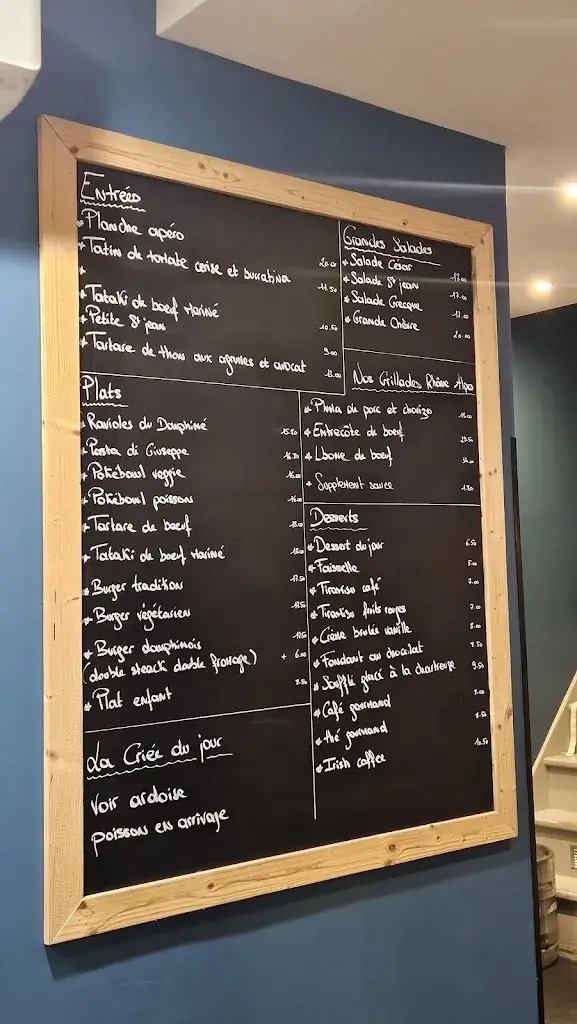 Entrées
* Planche apéro 20.00
* Tatin de tomate cerise et burratina 11.50
*
* Tataki de boeuf mariné 10.50
* Petite St jean 9.00
* Tartare de thon aux agrumes et avocat 13.00
Grandes Salades
* Salade César 17.00
* Salade St jean 17.00
* Salade Grecque 17.00
* Grande Chèvre 20.00
Plats
* Ravioles du Dauphiné
* Pasta di Giuseppe
* Pokébowl veggie 16.00
* Pokébowl poisson 16.00
* Tartare de boeuf
* Tataki de boeuf mariné
* Burger tradition 17.50
* Burger végétarien
* Burger dauphinois
(double steack double fromage) + 6.00
* Plat enfant
Nos Grillades Rhône Alpes
* Pluma de porc et chorizo
* Entrecôte de boeuf
* Lbone de boeuf
* Supplément sauce
Desserts
* Dessert du jour 6.50
* Faisselle
* Tiramisu café
* Tiramisu fruits rouges
* Crème brulée vanille
* Fondant au chocolat
* Soufflé glacé à la chartreuse 9.50
* Café gourmand
* thé gourmand
* Irish coffee
La Criée du jour
Voir ardoise
poisson en arrivage